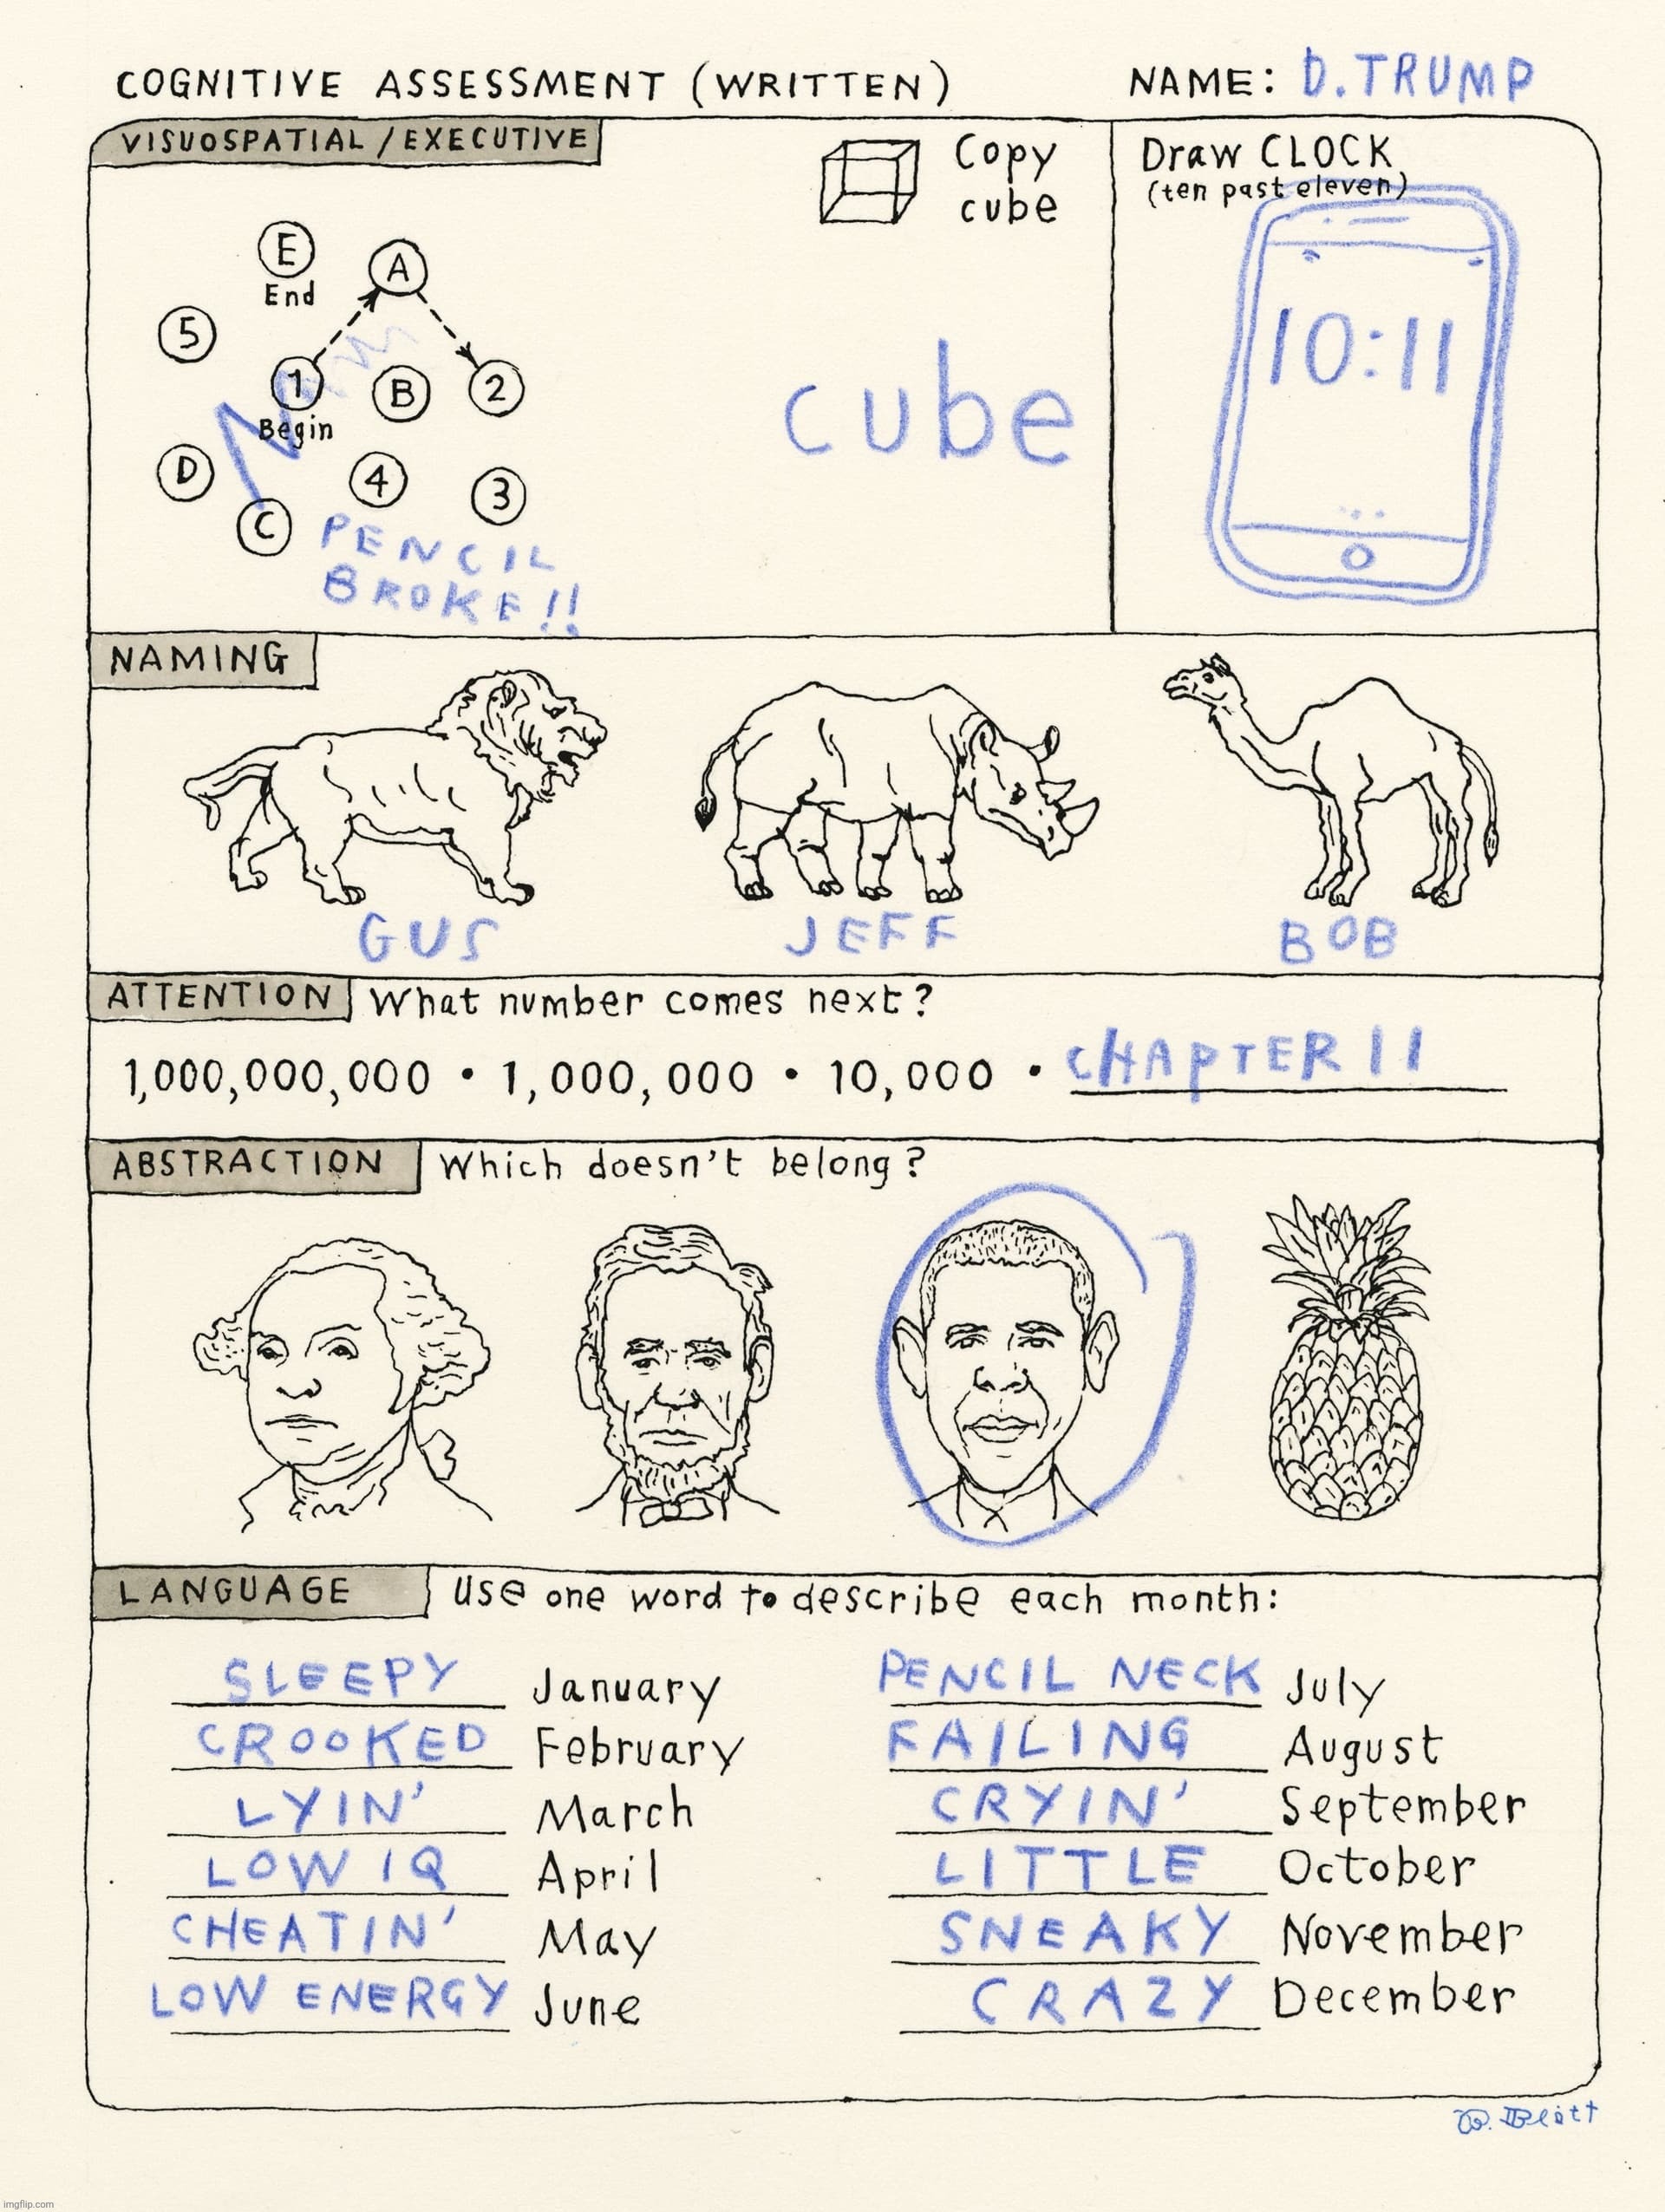 COGNITIVE ASSESSMENT (WRITTEN) NAME: D. TRUMP
VISUOSPATIAL / EXECUTIVE
Copy
cube
Draw CLOCK
(ten past eleven)
E
End
A
5
1
Begin
B
2
D
4
3
C
PENCIL
BROKE!!
cube
10:11
NAMING
GUS JEFF BOB
ATTENTION What number comes next?
1,000,000,000 • 1,000,000 • 10,000 • CHAPTER 11
ABSTRACTION Which doesn't belong?
LANGUAGE Use one word to describe each month:
SLEEPY January PENCIL NECK July
CROOKED February FAILING August
LYIN' March CRYIN' September
LOW IQ April LITTLE October
CHEATIN' May SNEAKY November
LOW ENERGY June CRAZY December
imgflip.com